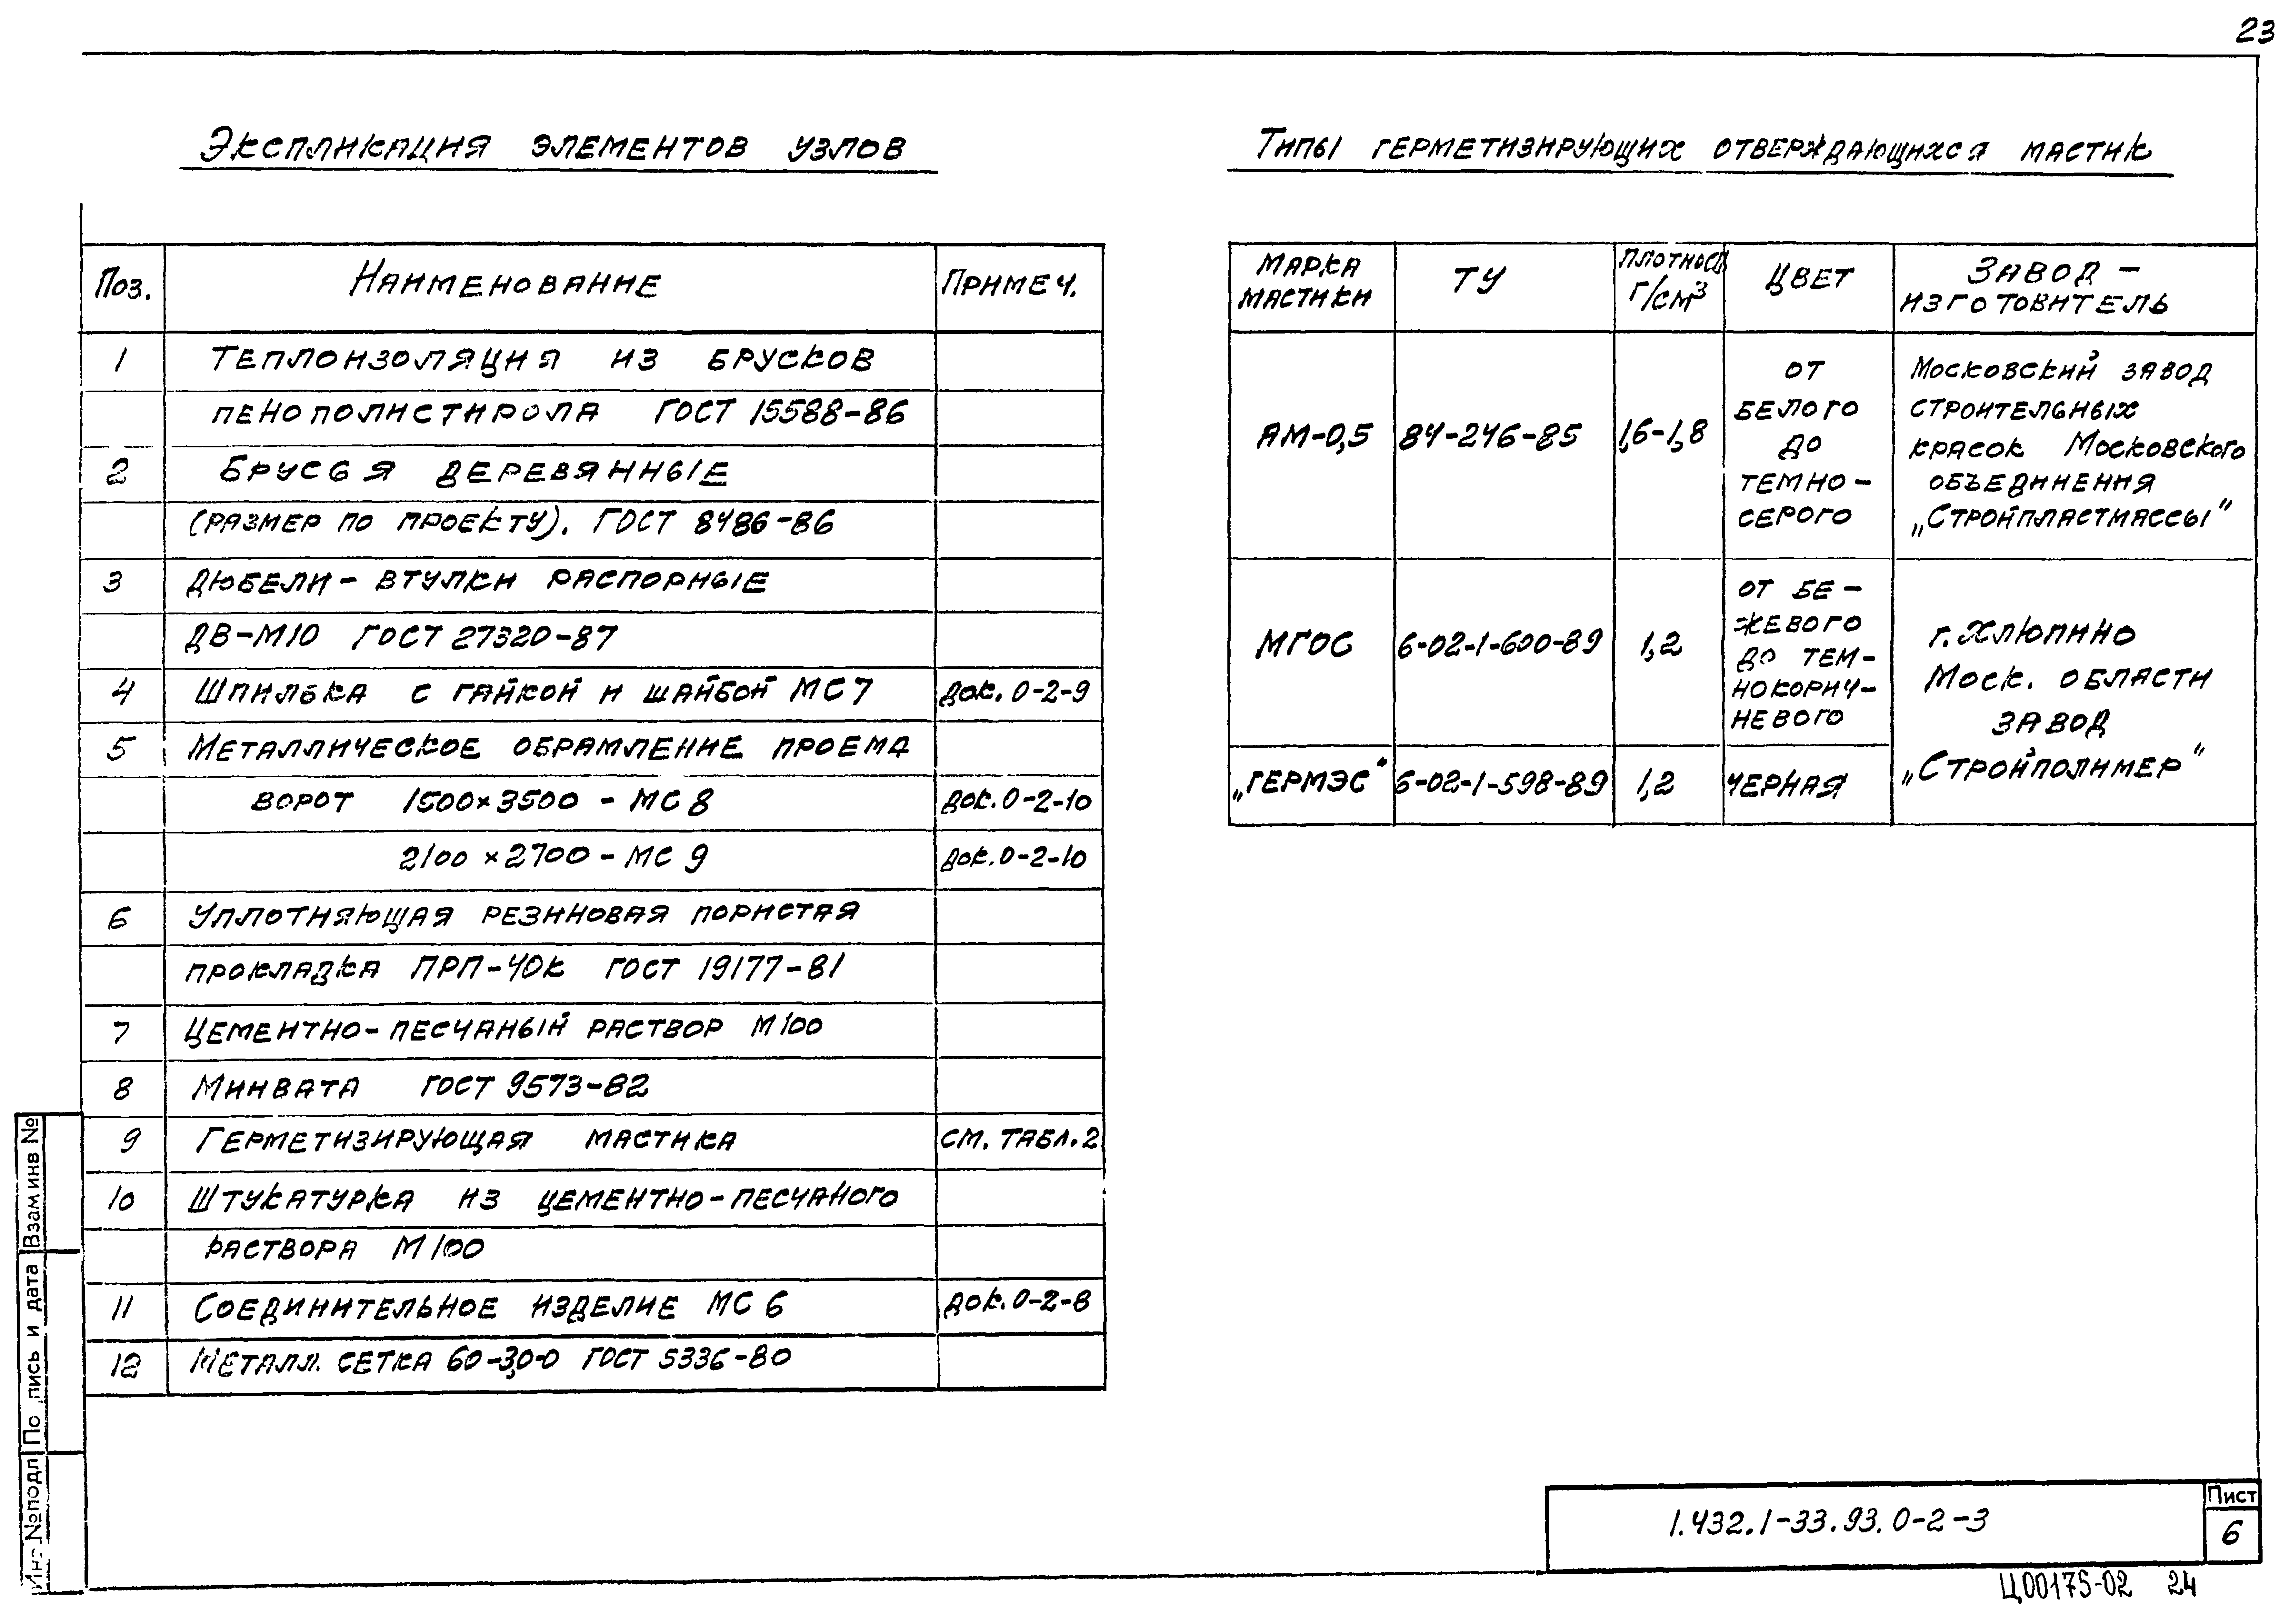 23
Экспликация элементов узлов
Поз. Наименование Примеч.
1 Теплоизоляция из брусков
пенополистирола ГОСТ 15588-86
2 Брусья деревянные
(размер по проекту). ГОСТ 8486-86
3 Дюбели-втулки распорные
ДВ-М10 ГОСТ 27320-87
4 Шпилька с гайкой и шайбой МС7 док. 0-2-9
5 Металлическое обрамление проема
ворот 1500×3500 - МС 8 док. 0-2-10
2100 × 2700 - МС 9 док. 0-2-10
6 Уплотняющая резиновая пористая
прокладка ПРП-40К ГОСТ 19177-81
7 Цементно-песчаный раствор М100
8 Минвата ГОСТ 9573-82
9 Герметизирующая мастика см. табл.2
10 Штукатурка из цементно-песчаного
раствора М100
11 Соединительное изделие МС 6 док. 0-2-8
12 Металл. сетка 60-3,0-0 ГОСТ 5336-80
Типы герметизирующих отверждающихся мастик
Марка
мастики
ТУ
плотность
г/см³
Цвет
Завод -
изготовитель
АМ-0,5
84-246-85
1,6-1,8
от
белого
до
темно-
серого
Московский завод
строительных
красок Московского
объединения
„Стройпластмассы"
МГОС
6-02-1-600-89
1,2
от бе-
жевого
до тем-
нокорич-
невого
г. Хлюпино
Моск. области
завод
„Стройполимер"
„Гермэс"
6-02-1-598-89
1,2
черная
Взам инв №
Подпись и дата
Инв №подл
1.432.1-33.93.0-2-3
Лист
6
Ц00175-02 24